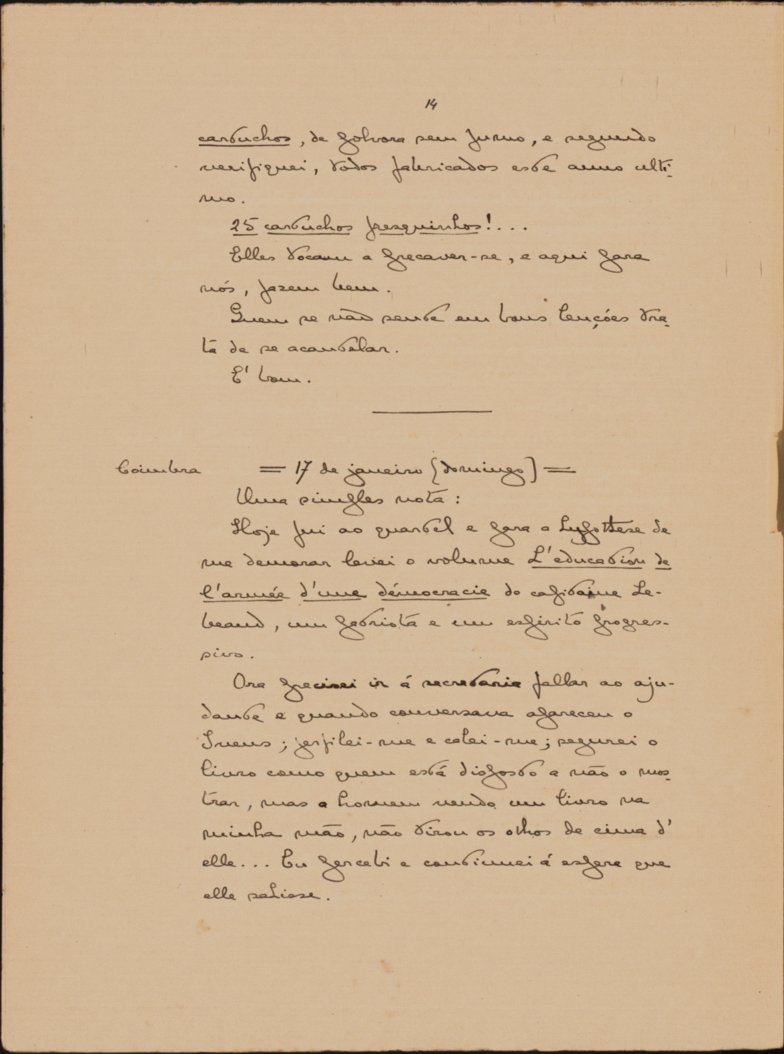 14
cartuchos, de polvora sem fumo, e segundo
verifiquei, todos fabricados este anno ulti-
mo.
25 cartuchos fresquinhos!...
Elles tocam a precaver-se, e aqui para
nós, fazem bem.
Quem se não sente em bons lenções tra-
ta de se acautelar.
E' bom.
Coimbra = 17 de janeiro (domingo) =
Uma simples nota:
Hoje fui ao quartel e para a hypothese de
me demorar levei o volume L'education de
l'armée d'une démocracie do capitaine Le-
beaud, um patriota e um espirito progres-
sivo.
Ora precisei ir á secretaria fallar ao aju-
dante e quando conversava apareceu o
; perfilei-me e calei-me; segurei o
livro como quem está disposto a não o mos-
trar, mas o homem vendo um livro na
minha mão, não tirou os olhos de cima d'
elle... Eu percebi e continuei á espera que
elle sahisse.